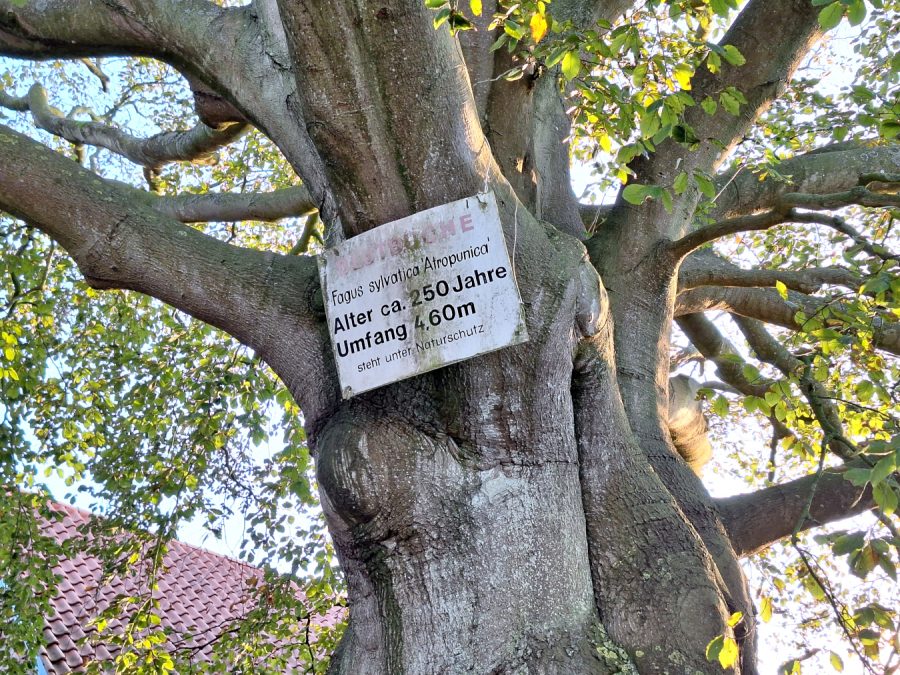 BLUTBUCHE
Fagus sylvatica 'Atropunica'
Alter ca. 250 Jahre
Umfang 4,60m
steht unter Naturschutz